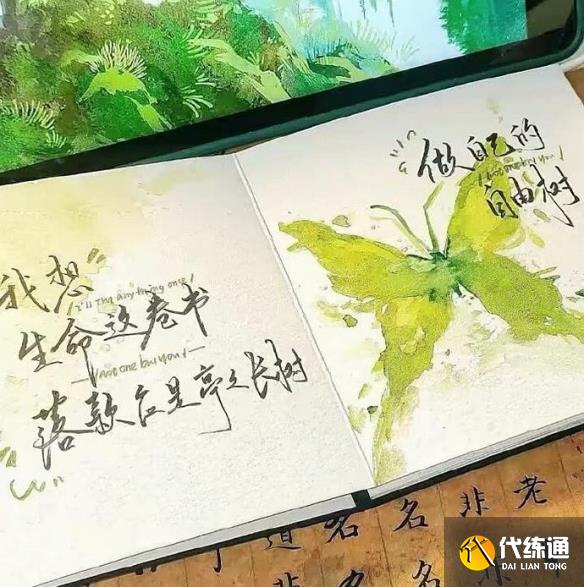 我想
I'll try anything once
生命这卷书
not one but you
落款应是亭亭长树
做自己的
not one but you
自由树
老
非
名
名
道
代练通
DAI LIAN TONG